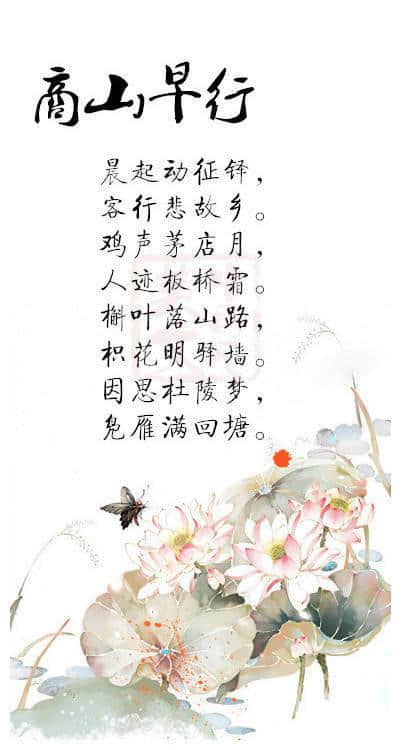 商山早行
晨起动征铎，
客行悲故乡。
鸡声茅店月，
人迹板桥霜。
槲叶落山路，
枳花明驿墙。
因思杜陵梦，
凫雁满回塘。